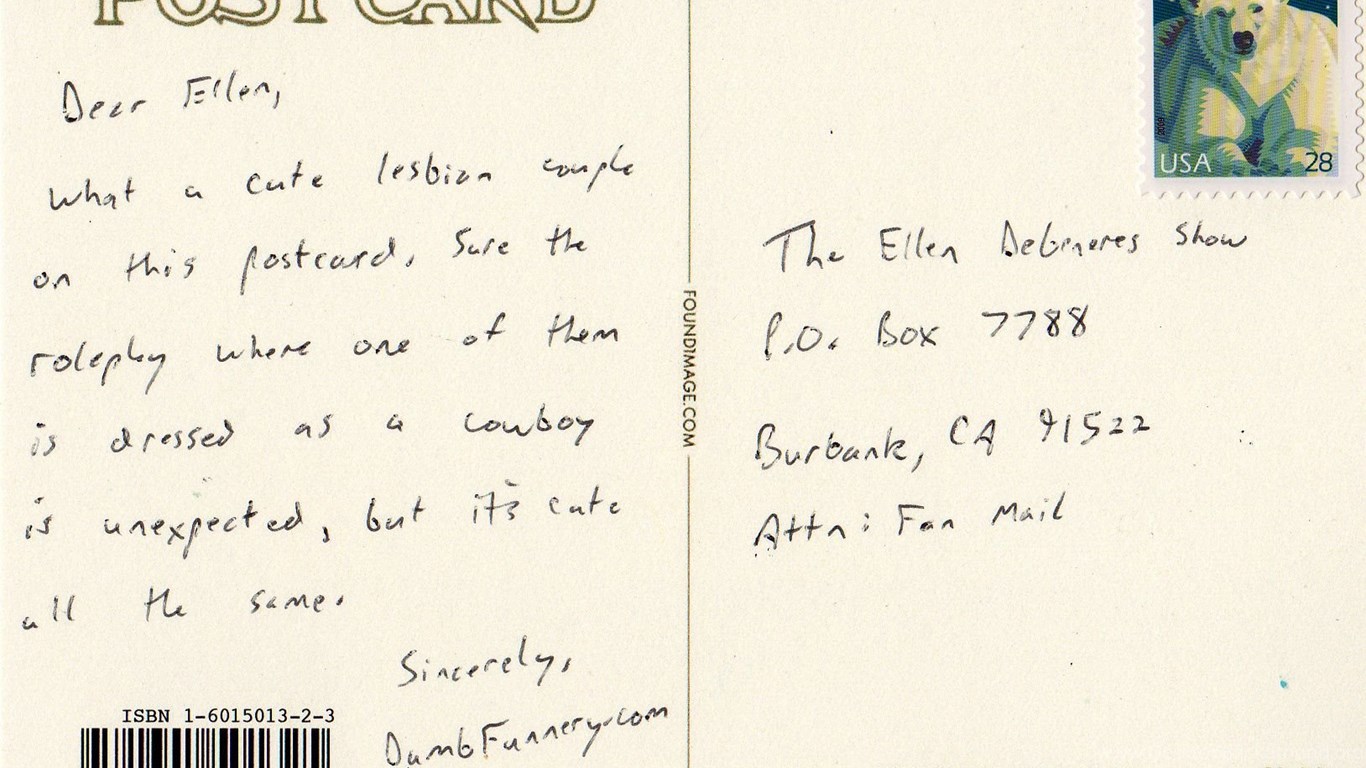 POSTCARD
Dear Ellen,
What a cute lesbian couple
on this postcard. Sure the
roleplay where one of them
is dressed as a cowboy
is unexpected, but it's cute
all the same.
Sincerely,
DumbFunnery.com
ISBN 1-6015013-2-3
FOUNDIMAGE.COM
USA 28
The Ellen DeGeneres Show
P.O. Box 7788
Burbank, CA 91522
Attn: Fan Mail